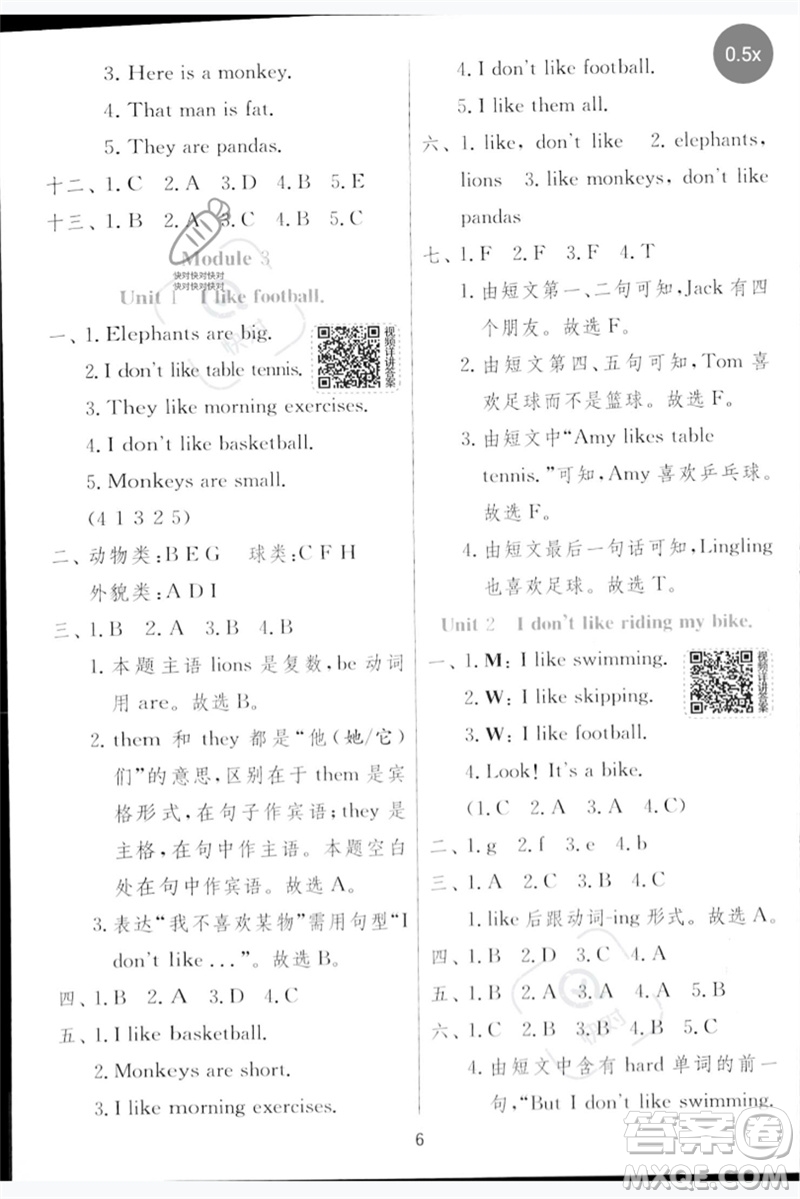 3. Here is a monkey.
4. That man is fat.
5. They are pandas.
十二、1.C 2.A 3.D 4.B 5.E
十三、1.B 2.A 3.C 4.B 5.C
Module 3
快对快对快对
快对快对快对
Unit 1 I like football.
一、1. Elephants are big.
2. I don't like table tennis.
3. They like morning exercises.
4. I don't like basketball.
5. Monkeys are small.
(4 1 3 2 5)
视频详讲答案
二、动物类:B E G 球类:C F H
外貌类:A D I
三、1.B 2.A 3.B
1. 本题主语 lions 是复数,be 动词
用 are。故选 B。
2. them 和 they 都是“他(她/它)
们”的意思,区别在于 them 是宾
格形式,在句子作宾语;they 是
主格,在句中作主语。本题空白
处在句中作宾语。故选 A。
3. 表达“我不喜欢某物”需用句型“I
don't like ...”。故选 B。
四、1.B 2.A 3.D 4.C
五、1. I like basketball.
2. Monkeys are short.
3. I like morning exercises.
0.5x
4. I don't like football.
5. I like them all.
六、1. like, don't like 2. elephants,
lions 3. like monkeys, don't like
pandas
七、1.F 2.F 3.F 4.T
1. 由短文第一、二句可知,Jack 有四
个朋友。故选 F。
2. 由短文第四、五句可知,Tom 喜
欢足球而不是篮球。故选 F。
3. 由短文中“Amy likes table
tennis.”可知,Amy 喜欢乒乓球。
故选 F。
4. 由短文最后一句话可知,Lingling
也喜欢足球。故选 T。
Unit 2 I don't like riding my bike.
一、1. M: I like swimming.
2. W: I like skipping.
3. W: I like football.
4. Look! It's a bike.
(1.C 2.A 3.A 4.C)
视频详讲答案
二、1.g 2.f 3.e 4.b
三、1.A 2.C 3.A 4.C
1. like 后跟动词-ing 形式。故选 A。
四、1.B 2.D 3.A 4.C
五、1.B 2.A 3.A 4.A 5.B
六、1.C 2.B 3.B 4.B 5.C
4. 由短文中含有 hard 单词的前一
句,“But I don't like swimming.
6
答案卷
MXQE.COM